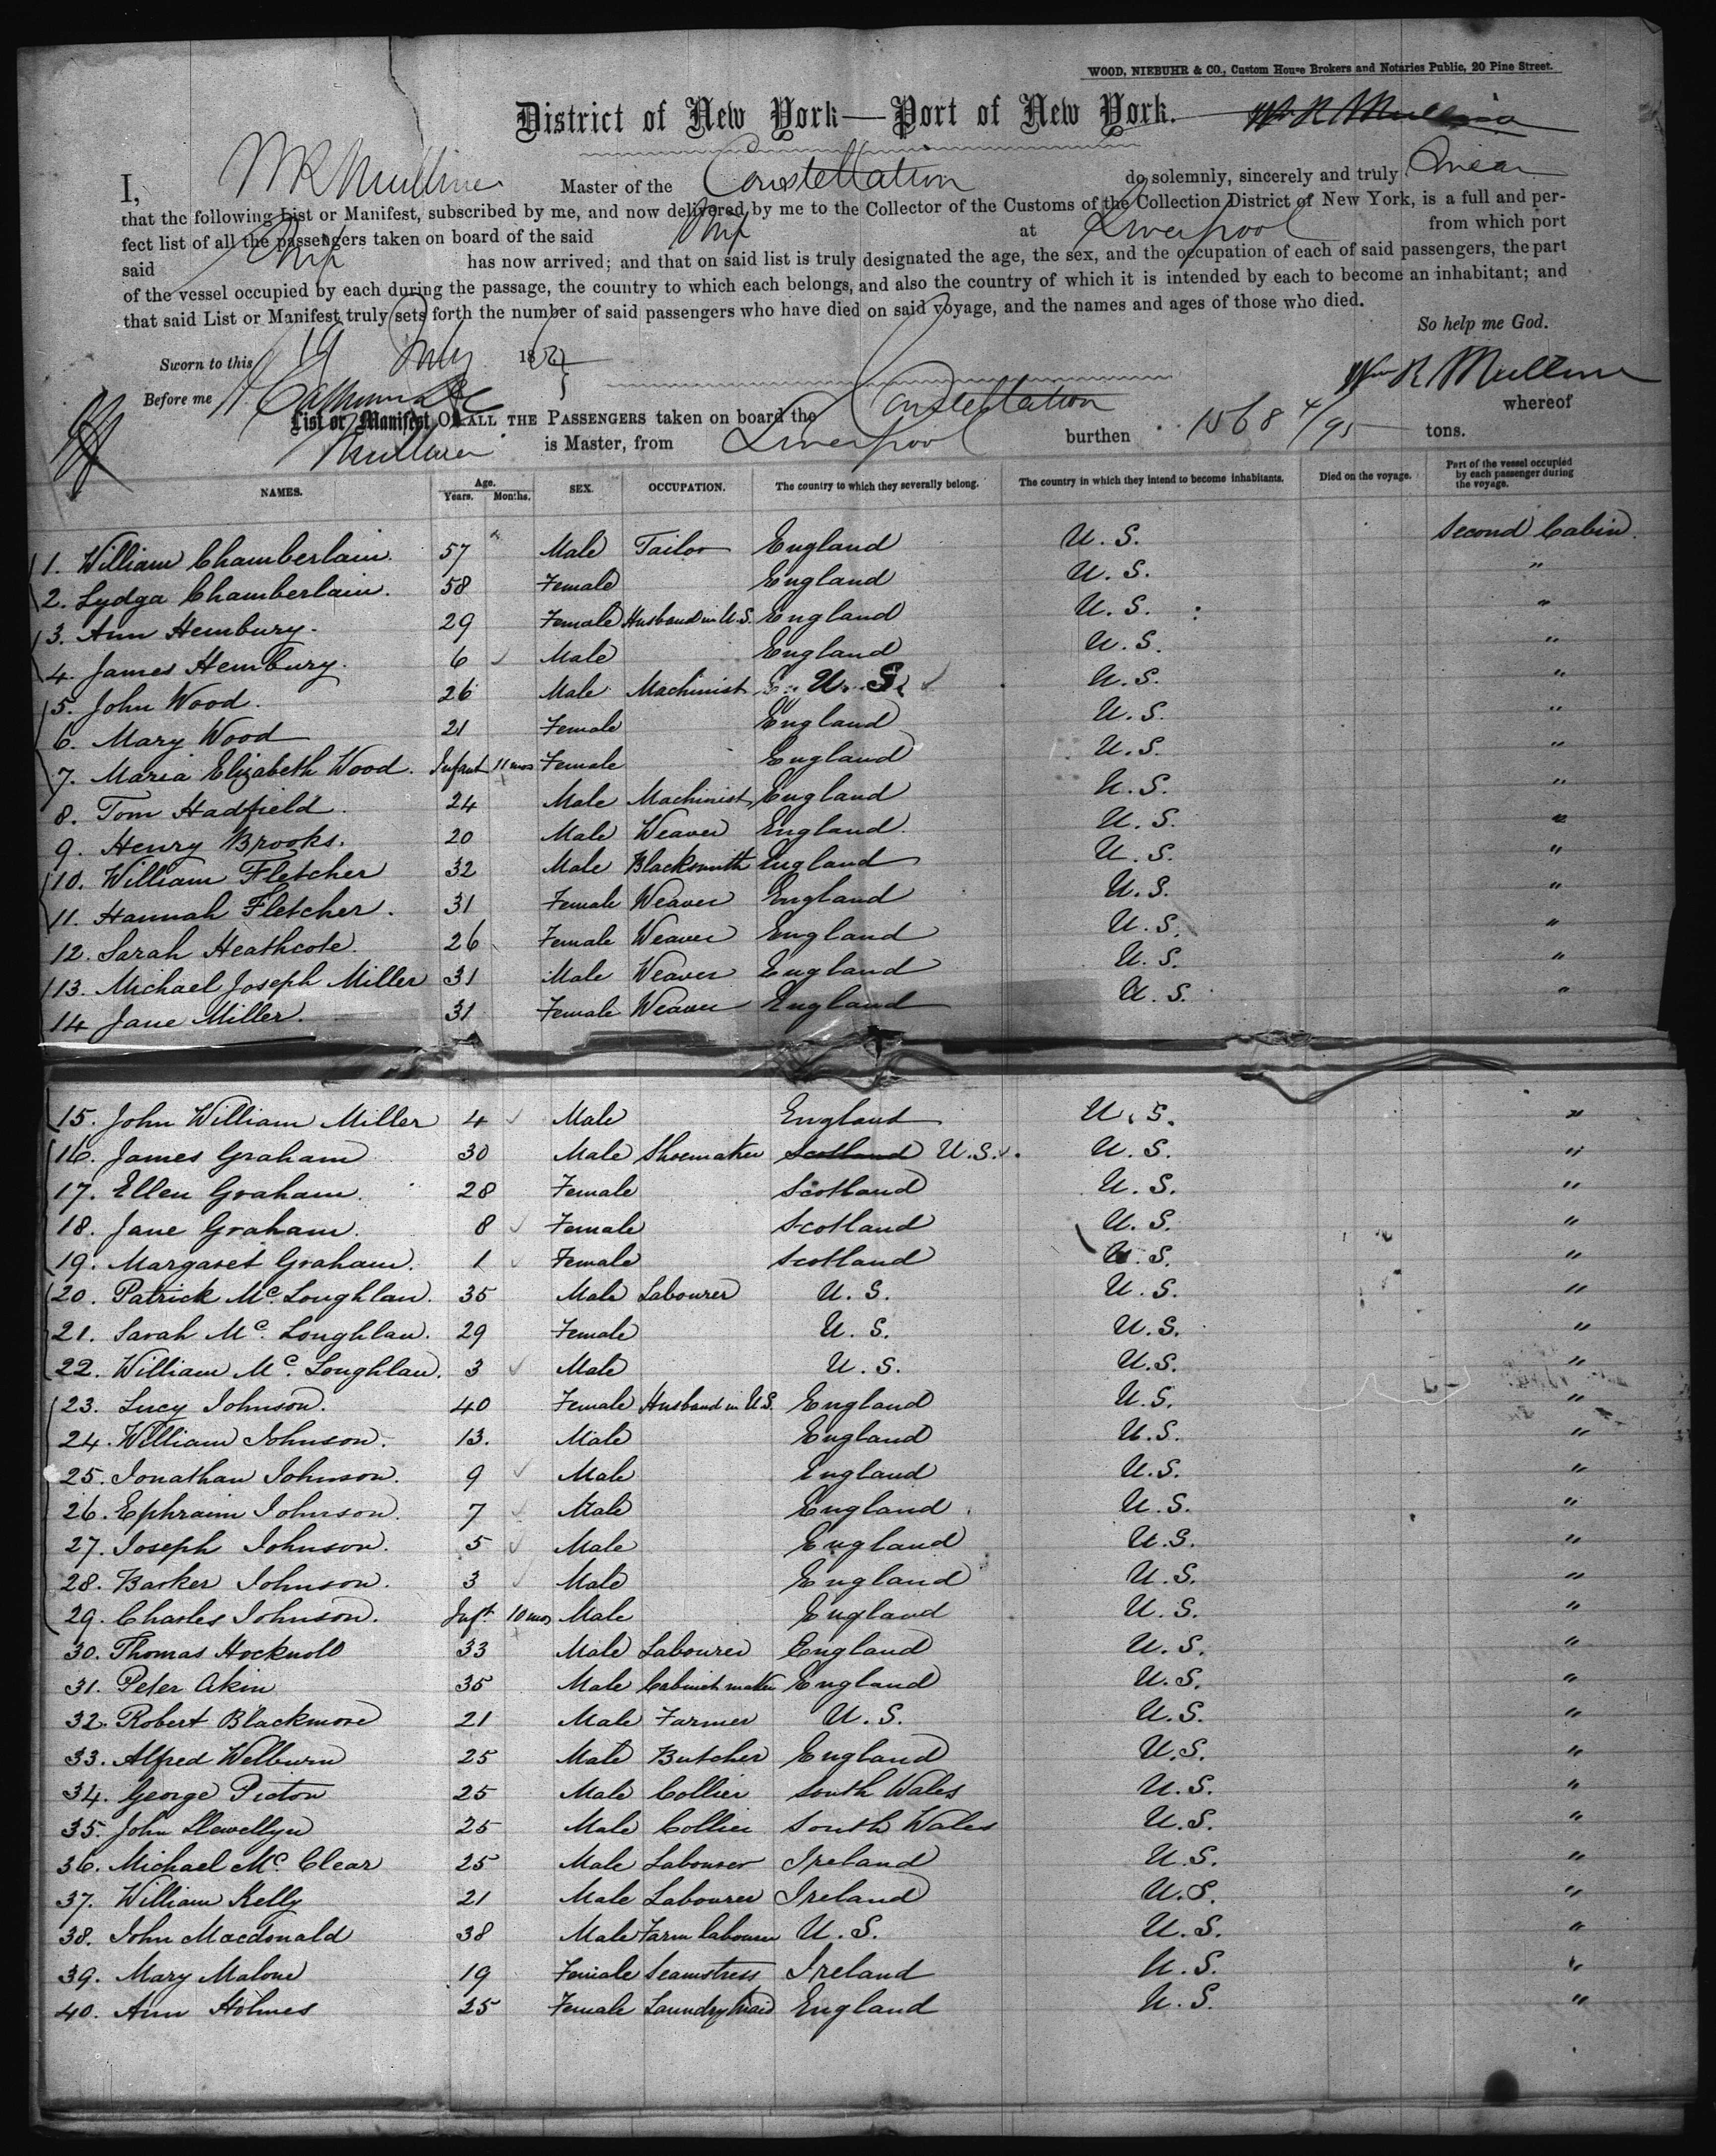 WOOD, NIEBUHR & CO., Custom House Brokers and Notaries Public, 20 Pine Street.
District of New York—Port of New York. Wm R Mullins
I, W R Mulliner Master of the Constellation do solemnly, sincerely and truly Swear
that the following List or Manifest, subscribed by me, and now delivered by me to the Collector of the Customs of the Collection District of New York, is a full and per-
fect list of all the passengers taken on board of the said Ship at Liverpool from which port
said Ship has now arrived; and that on said list is truly designated the age, the sex, and the occupation of each of said passengers, the part
of the vessel occupied by each during the passage, the country to which each belongs, and also the country of which it is intended by each to become an inhabitant; and
that said List or Manifest truly sets forth the number of said passengers who have died on said voyage, and the names and ages of those who died.
So help me God.
Sworn to this 19 July 186
Before me Wm R Mulliner
List or Manifest OF ALL THE PASSENGERS taken on board the Constellation whereof
Mulliner is Master, from Liverpool burthen 1568 4/95 tons.
NAMES. Age. Years. Months. SEX. OCCUPATION. The country to which they severally belong. The country in which they intend to become inhabitants. Died on the voyage. Part of the vessel occupied by each passenger during the voyage.
1. William Chamberlain. 57 Male Tailor England U. S. Second Cabin.
2. Lydga Chamberlain. 58 Female England U. S. "
3. Ann Hembury. 29 Female Husband in U.S. England U. S. "
4. James Hembury. 6 Male England U. S. "
5. John Wood. 26 Male Machinist U. S. U. S. "
6. Mary Wood 21 Female England U. S. "
7. Maria Elizabeth Wood. Infant 11 mos Female England U. S. "
8. Tom Hadfield. 24 Male Machinist England U. S. "
9. Henry Brooks. 20 Male Weaver England. U. S. "
10. William Fletcher 32 Male Blacksmith England U. S. "
11. Hannah Fletcher. 31 Female Weaver England U. S. "
12. Sarah Heathcote. 26 Female Weaver England U. S. "
13. Michael Joseph Miller 31 Male Weaver England U. S. "
14 Jane Miller. 31 Female Weaver England U. S. "
15. John William Miller 4 Male England U. S. "
16. James Graham 30 Male Shoemaker Scotland U.S. U. S. "
17. Ellen Graham. 28 Female Scotland U. S. "
18. Jane Graham. 8 Female Scotland U. S. "
19. Margaret Graham. 1 Female Scotland U. S. "
20. Patrick Mc. Loughlan. 35 Male Labourer U. S. U. S. "
21. Sarah Mc. Loughlan. 29 Female U. S. U. S. "
22. William Mc. Loughlan. 3 Male U. S. U.S. "
23. Lucy Johnson. 40 Female Husband in U.S. England U. S. "
24. William Johnson. 13. Male England U. S. "
25. Jonathan Johnson. 9 Male England U. S. "
26. Ephraim Johnson. 7 Male England U. S. "
27. Joseph Johnson. 5 Male England U. S. "
28. Barker Johnson. 3 Male England U. S. "
29. Charles Johnson. Inft. 10 mos Male England U. S. "
30. Thomas Hocknoll 33 Male Labourer England U. S. "
31. Peter Akin 35 Male Cabinet maker England U. S. "
32. Robert Blackmore 21 Male Farmer U. S. U. S. "
33. Alfred Welburn 25 Male Butcher England U. S. "
34. George Picton 25 Male Collier South Wales U. S. "
35. John Llewellyn 25 Male Collier South Wales U. S. "
36. Michael Mc. Clear 25 Male Labourer Ireland U. S. "
37. William Kelly 21 Male Labourer Ireland U. S. "
38. John Macdonald 38 Male Farm labourer U. S. U. S. "
39. Mary Malone 19 Female Seamstress Ireland U. S. "
40. Ann Holmes 25 Female Laundry Maid England U. S. "